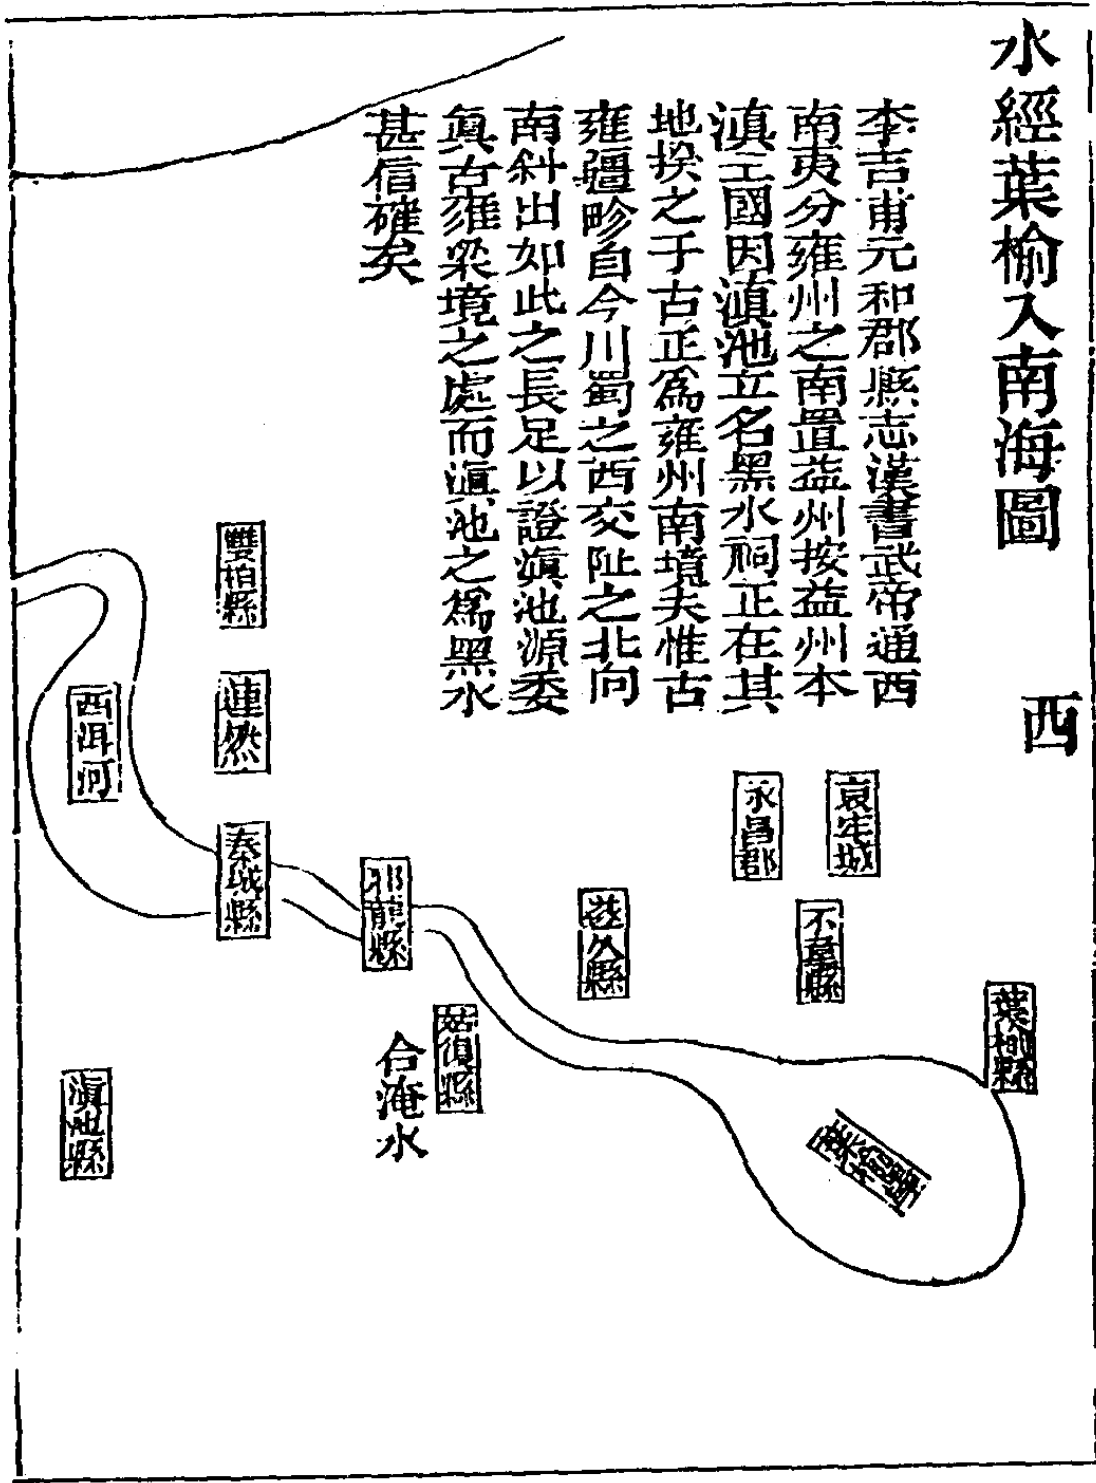 水經葉榆入南海圖
西
李吉甫元和郡縣志漢書武帝通西
南夷分雍州之南置益州按益州本
滇王國因滇池立名黑水祠正在其
地揆之于古正為雍州南境夫惟古
雍疆畛自今川蜀之西交阯之北向
南斜出如此之長足以證滇池源委
眞古雍梁境之處而滇池之為黑水
甚信確矣
哀牢城
永昌郡
不韋縣
葉榆縣
葉榆澤
遂久縣
姑復縣
合淹水
邪龍縣
秦城縣
連然
雙柏縣
西洱河
滇池縣